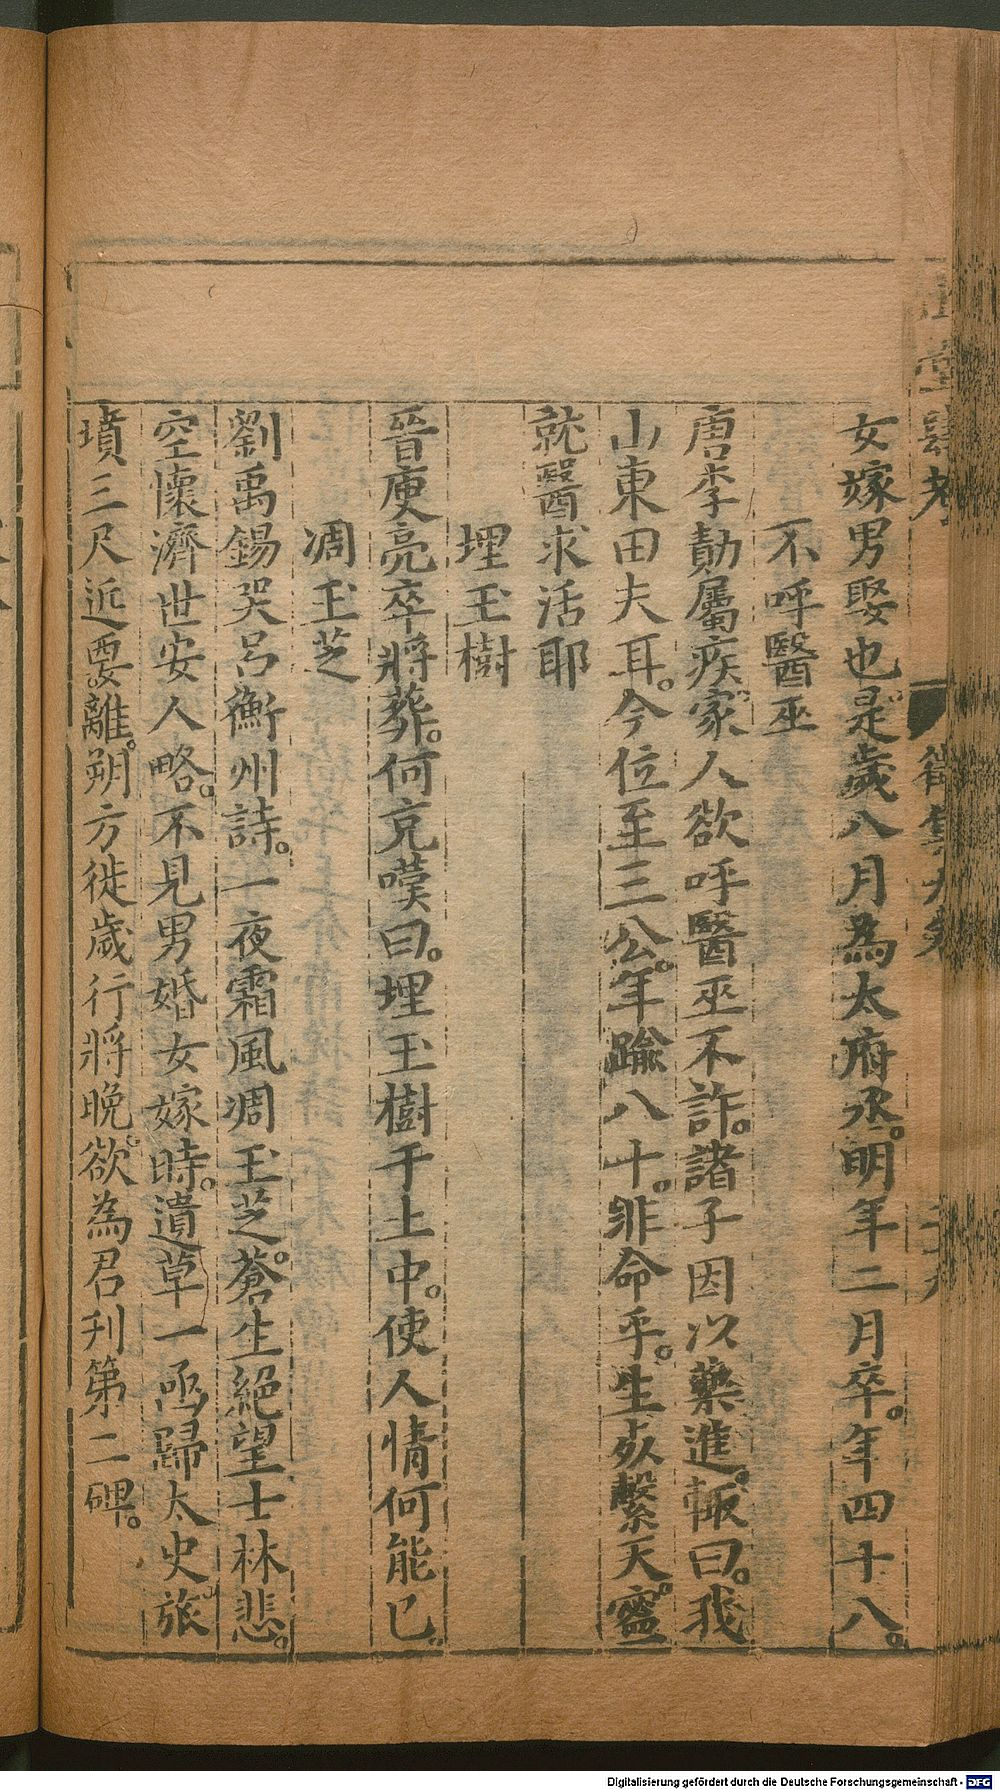 女嫁男娶也。是歲八月為太府丞。明年二月卒。年四十八。
不呼醫巫
唐李勣屬疾。家人欲呼醫巫不許。諸子因以藥進。輒曰。我
山東田夫耳。今位至三公。年踰八十。非命乎。生死繫天。寧
就醫求活耶
埋玉樹
晉庾亮卒將葬。何克嘆曰。埋玉樹于土中。使人情何能已。
凋玉芝
劉禹錫哭呂衡州詩。一夜霜風凋玉芝。蒼生絕望士林悲。
空懷濟世安人略。不見男婚女嫁時。遺草一凾歸太史。旅
墳三尺近要離。朔方徙歲行將晚。欲為君刋第二碑。
Digitalisierung gefördert durch die Deutsche Forschungsgemeinschaft - DFG